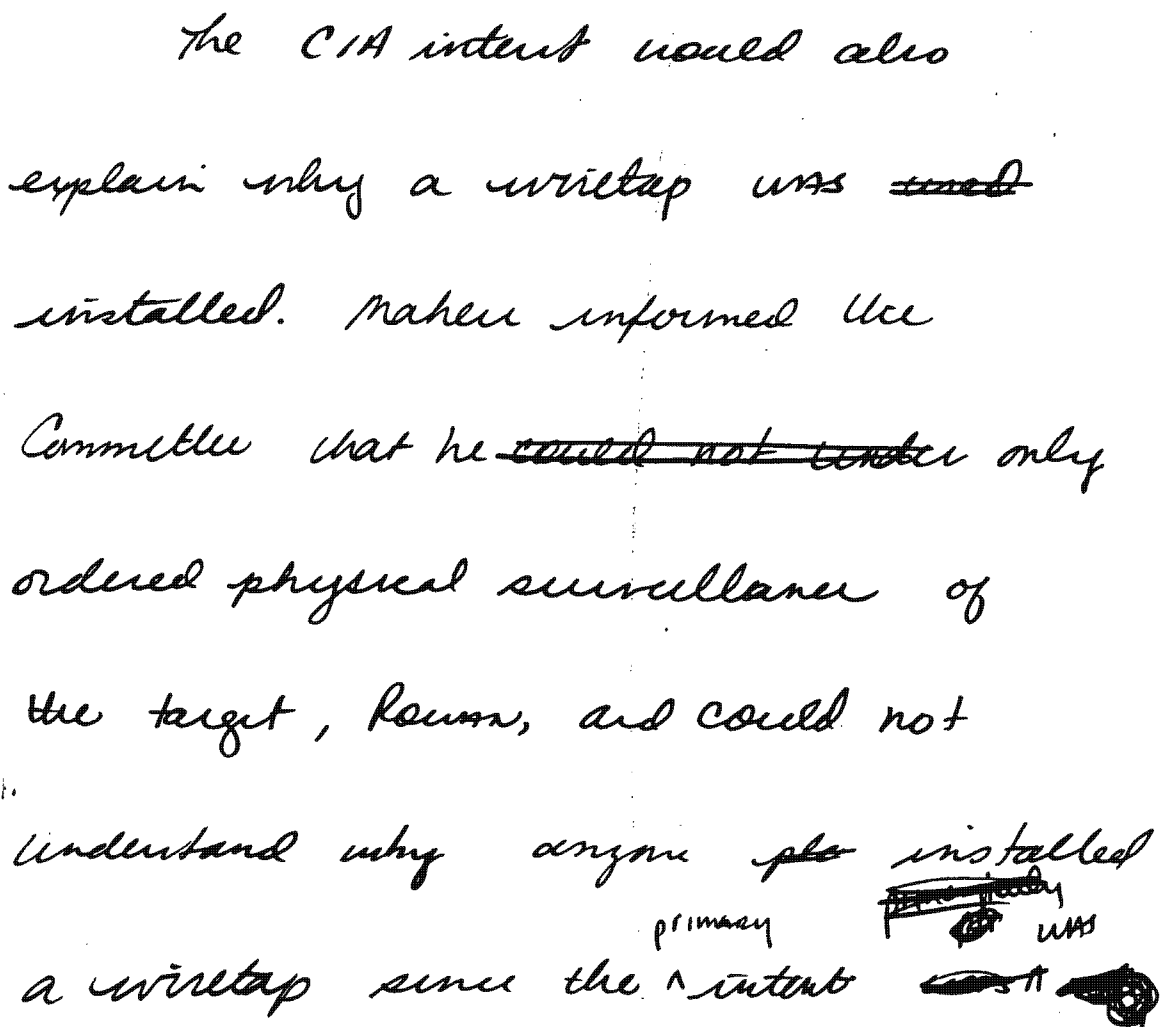 The CIA intent would also
explain why a wiretap was used
installed. Maheu informed the
Committee that he could not under only
ordered physical surveillance of
the target, Rowan, and could not
understand why anyone pla installed
primary was
a wiretap since the ^ intent